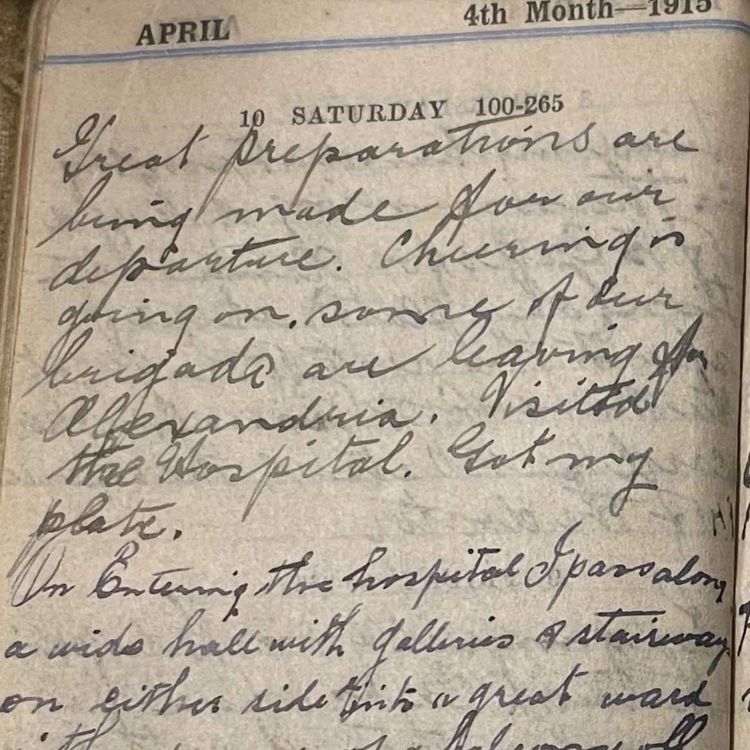 APRIL 4th Month—1915
10 SATURDAY 100-265
Great preparations are
being made for our
departure. Cheering is
going on, some of our
brigade are leaving for
Alexandria. Visited
the Hospital. Got my
plate.
On Entering the hospital I pass along
a wide hall with galleries & stairway
on either side into a great ward
of a